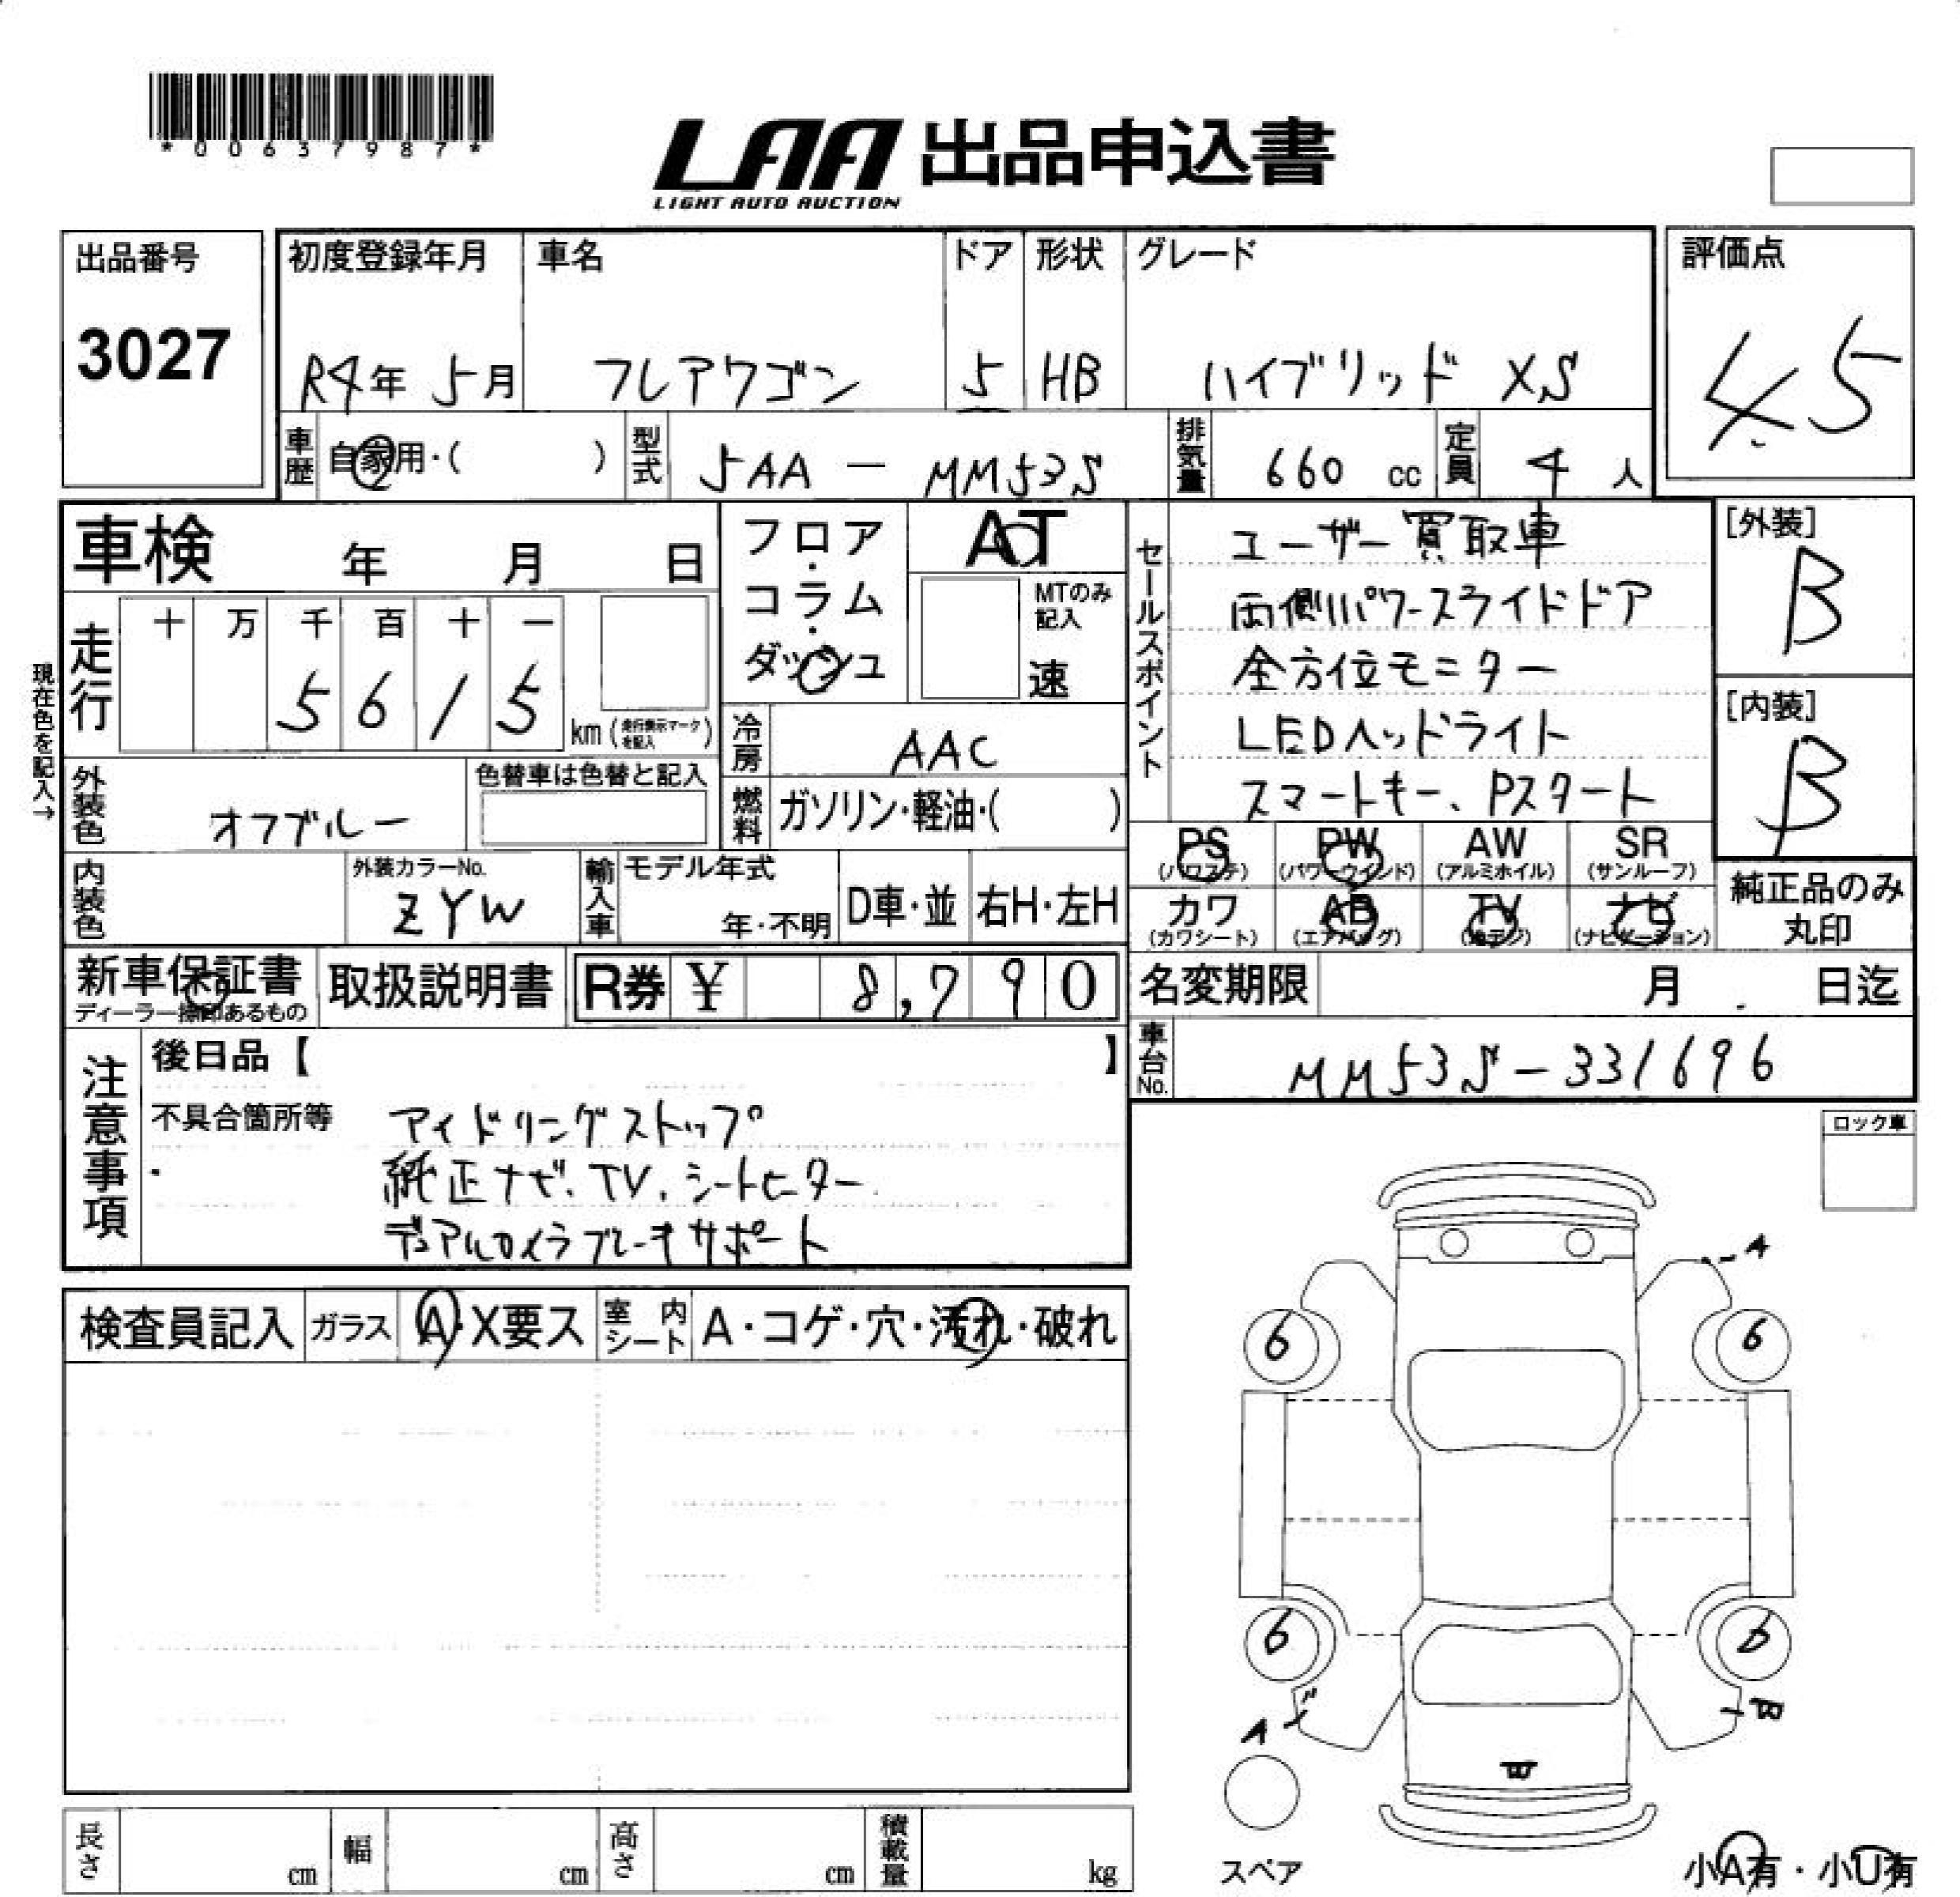 *00637987*
LAA 出品申込書
LIGHT AUTO AUCTION
出品番号
3027
初度登録年月
R4年 5月
車名
フレアワゴン
ドア
5
形状
HB
グレード
ハイブリッド XS
評価点
4.5
車歴
自家用・( )
型式
5AA - MM53S
排気量
660 cc
定員
4 人
車検 年 月 日
フロア・コラム・ダッシュ
AT
MTのみ記入
速
セールスポイント
ユーザー買取車
両側パワースライドドア
全方位モニター
LEDヘッドライト
スマートキー、Pスタート
[外装]
B
[内装]
B
現在色を記入→
走行
十 万 千 百 十 一
5 6 1 5
km (走行表示マークを記入)
冷房
AAC
外装色
オフブルー
色替車は色替と記入
燃料
ガソリン・軽油・( )
内装色
外装カラーNo.
ZYW
輸入車
モデル年式
年・不明
D車・並
右H・左H
PS
(パワステ)
PW
(パワーウインド)
AW
(アルミホイル)
SR
(サンルーフ)
カワ
(カワシート)
AB
(エアバッグ)
TV
(地デジ)
ナビ
(ナビゲーション)
純正品のみ
丸印
新車保証書
ディーラー捺印あるもの
取扱説明書
R券 ¥ 8,790
名変期限 月 日迄
車台No.
MM53S-331696
注意事項
後日品【 】
不具合箇所等
アイドリングストップ
純正ナビ、TV、シートヒーター
デュアルカメラブレーキサポート
ロック車
検査員記入
ガラス
A・X要ス
室内シート
A・コゲ・穴・汚れ・破れ
A
6
6
6
6
A
B
スペア
小A有・小U有
長さ
cm
幅
cm
高さ
cm
積載量
kg